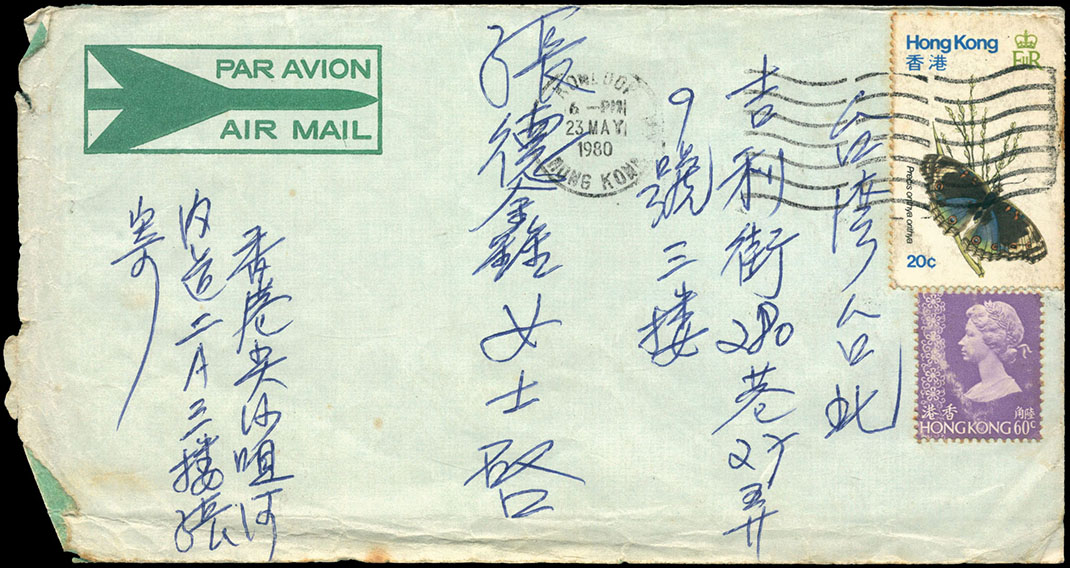 PAR AVION
AIR MAIL
Hong Kong
香港
EIIR
Precis orithya
20c
港香
角陸
HONG KONG 60c
KOWLOON
6 -PM
23 MAY
1980
HONG KONG
台灣台北
吉利街280巷27弄
9號三楼
張德鑫女士啓
香港尖沙咀河
內道二A三樓張
寄